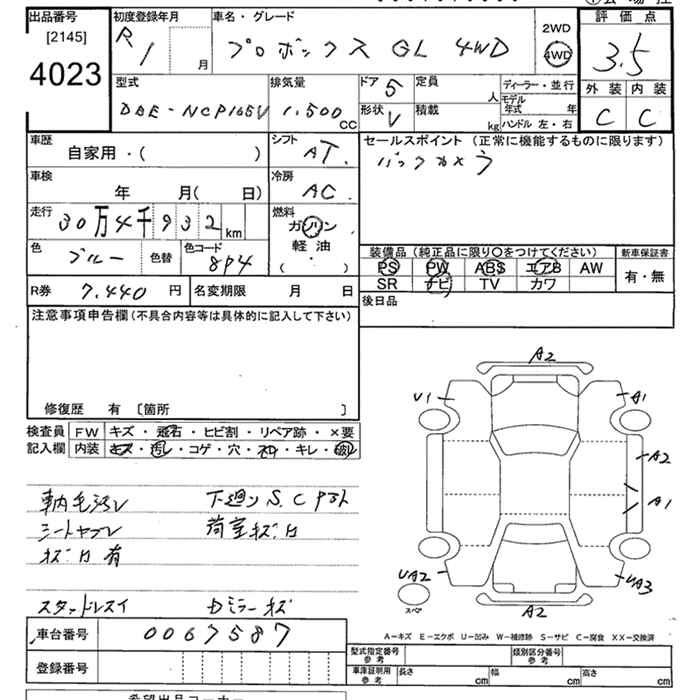 出品番号 初度登録年月 車名・グレード 2WD 評価点
[2145] R 1 月 プロボックス GL 4WD 4WD 3.5
4023 型式 排気量 ドア 5 定員 人 ディーラー・並行 外装 内装
DBE-NCP165V 1.500 CC 形状 V 積載 kg モデル年式 年 C C
ハンドル 左・右
車歴 シフト セールスポイント (正常に機能するものに限ります)
自家用・( ) AT バックカメラ
車検 冷房
年 月( 日) AC
走行 燃料
30万4千932 km ガソリン
色 色替 色コード 軽油 装備品 (純正品に限り〇をつけてください) 新車保証書
ブルー 8P4 ( . ) PS PW ABS エアB AW 有・無
SR ナビ TV カワ
R券 7.440 円 名変期限 月 日 後日品
注意事項申告欄 (不具合内容等は具体的に記入して下さい)
A2
U1 A1
修復歴 有 〔箇所 〕
検査員 FW キズ・飛石・ヒビ割・リペア跡・×要
記入欄 内装 キズ・汚レ・コゲ・穴・ネジ・キレ・破レ
A2
車内毛汚レ 下廻り S.C アリ A1
シートヤブレ 荷室キズ凹
キズ凹有
UA2 UA3
スペア
スタッドレス Dミラーキズ A2
A-キズ E-エクボ U-凹み W-補修跡 S-サビ C-腐食 XX-交換済
車台番号 0067587
型式指定番号 参考 類別区分番号 参考
登録番号 車庫証明用 参考 長さ cm 幅 cm 高さ cm
希望出品コーナー